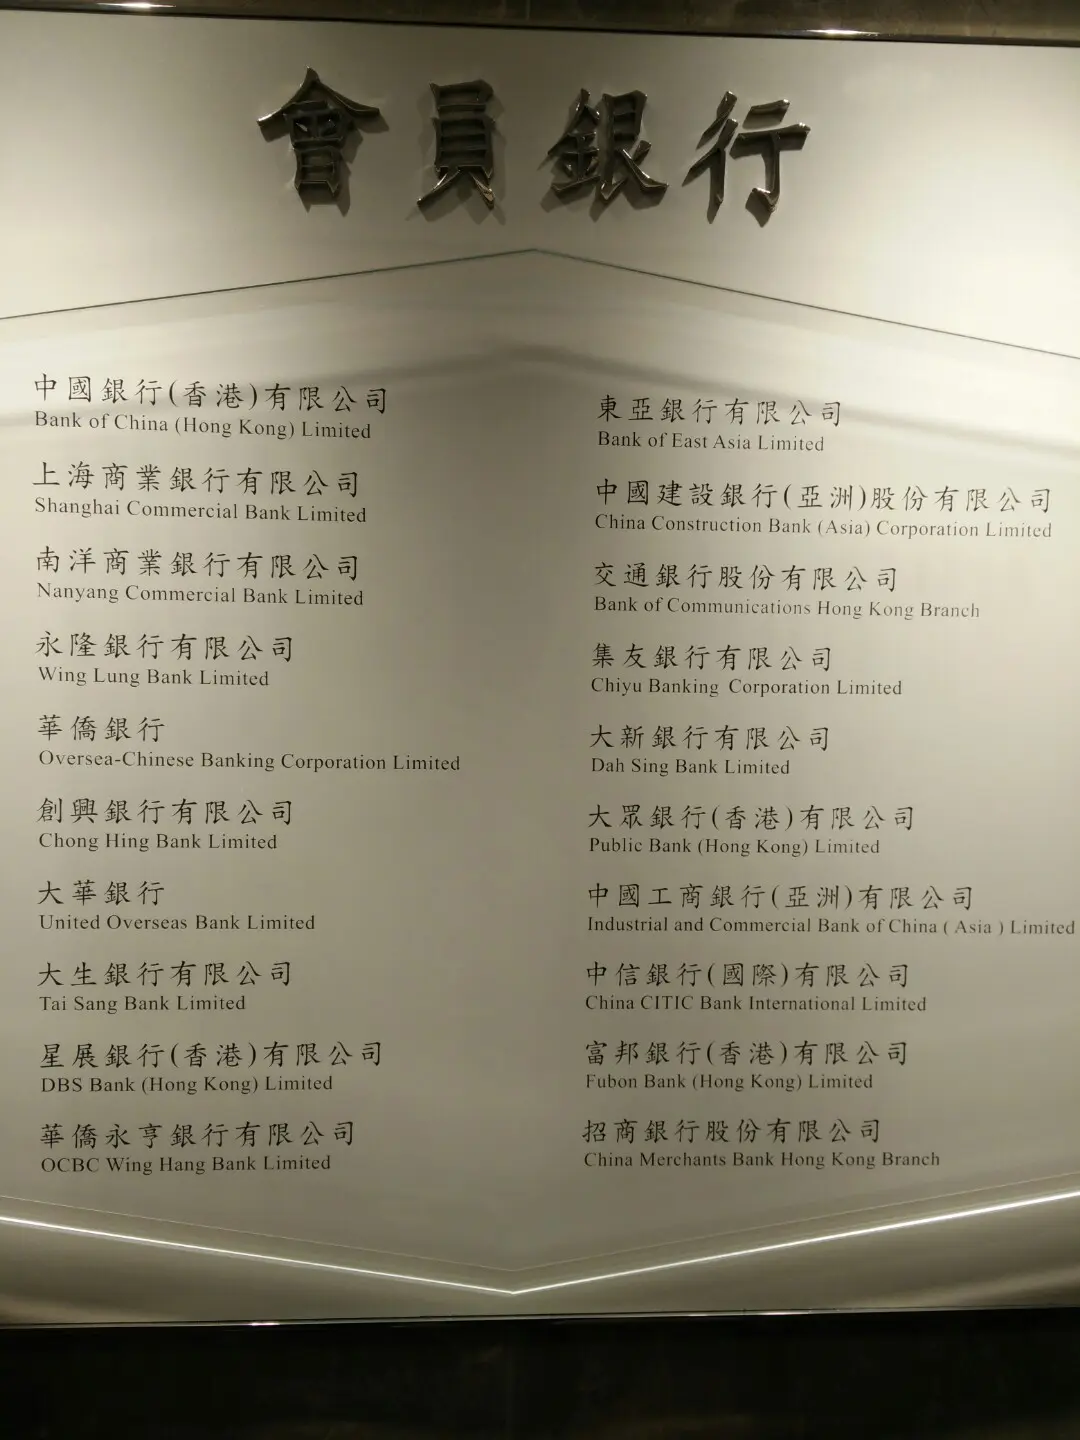 會員銀行
中國銀行(香港)有限公司
Bank of China (Hong Kong) Limited
上海商業銀行有限公司
Shanghai Commercial Bank Limited
南洋商業銀行有限公司
Nanyang Commercial Bank Limited
永隆銀行有限公司
Wing Lung Bank Limited
華僑銀行
Oversea-Chinese Banking Corporation Limited
創興銀行有限公司
Chong Hing Bank Limited
大華銀行
United Overseas Bank Limited
大生銀行有限公司
Tai Sang Bank Limited
星展銀行(香港)有限公司
DBS Bank (Hong Kong) Limited
華僑永亨銀行有限公司
OCBC Wing Hang Bank Limited
東亞銀行有限公司
Bank of East Asia Limited
中國建設銀行(亞洲)股份有限公司
China Construction Bank (Asia) Corporation Limited
交通銀行股份有限公司
Bank of Communications Hong Kong Branch
集友銀行有限公司
Chiyu Banking Corporation Limited
大新銀行有限公司
Dah Sing Bank Limited
大眾銀行(香港)有限公司
Public Bank (Hong Kong) Limited
中國工商銀行(亞洲)有限公司
Industrial and Commercial Bank of China ( Asia ) Limited
中信銀行(國際)有限公司
China CITIC Bank International Limited
富邦銀行(香港)有限公司
Fubon Bank (Hong Kong) Limited
招商銀行股份有限公司
China Merchants Bank Hong Kong Branch